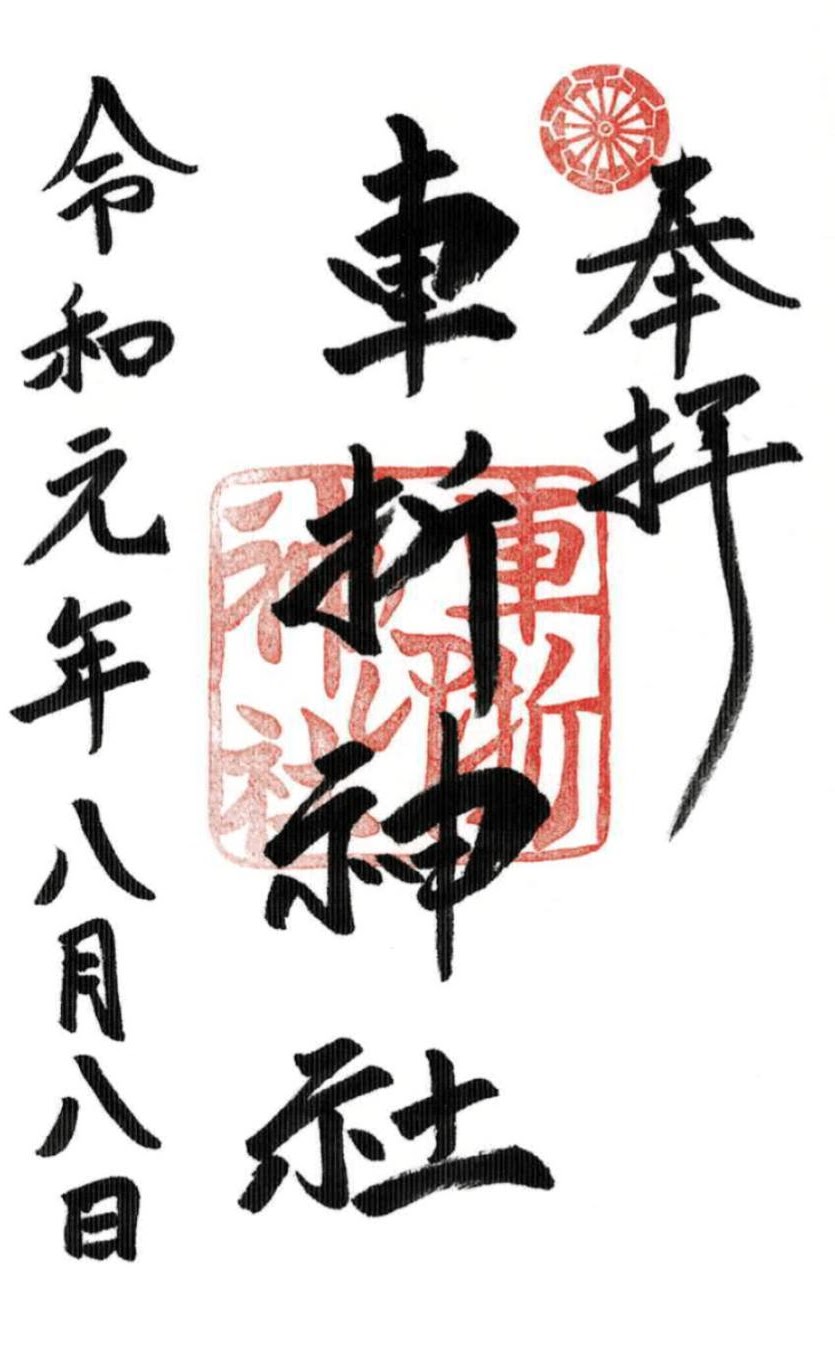 奉拝
車折神社
車折神社
令和元年八月八日